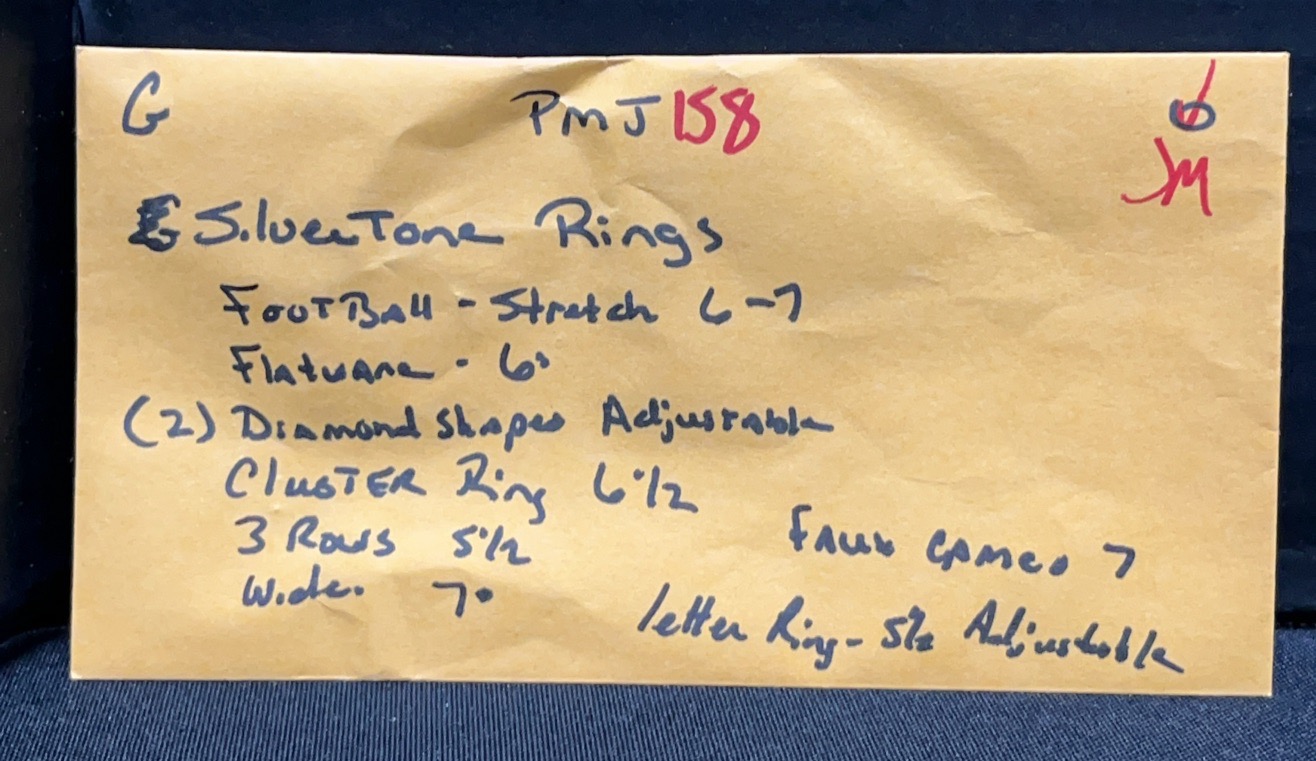 G PMJ 158
JM
SilverTone Rings
FootBall - Stretch 6-7
Flatware - 6
(2) Diamond Shapes Adjustable
Cluster Ring 6 1/2
3 Rows 5 1/2
Faux Cameo 7
Wide. 7
letter Ring - 5 1/2 Adjustable